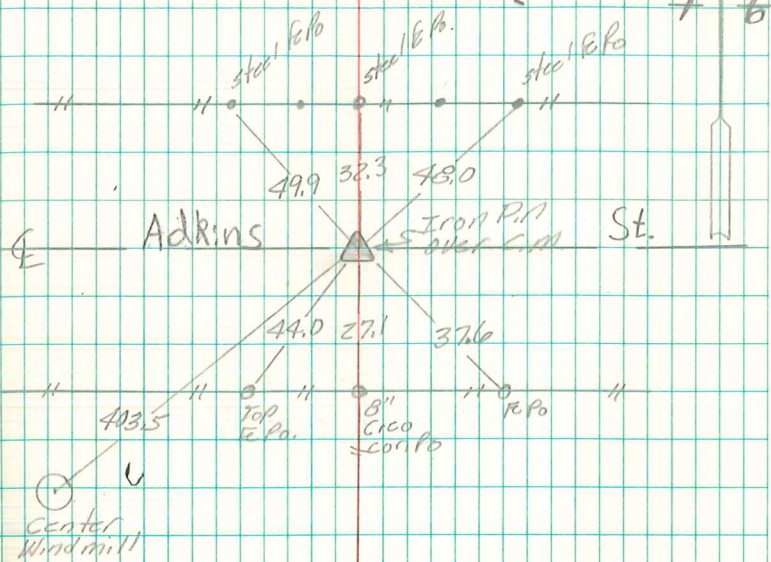 7 6
steel FePo
steel FePo.
steel FePo
49.9 32.3 48.0
℄ Adkins St.
Iron Pin
over C.M.
44.0 27.1 37.6
403.5
Top
FePo.
8"
Creo
corn Po
FePo
Center
Windmill